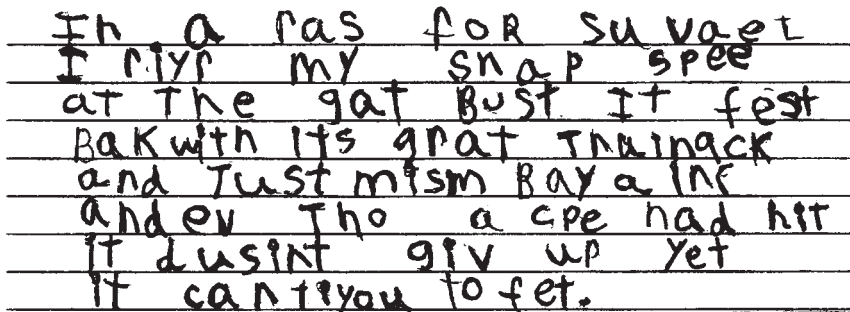 In a ras for suvaeL
I riyr my snap spee
at The gat Bust It fest
Bak with Its grat Thuinack
and Just mism Bay a inf
and ev Tho a cpe had hit
it dusint giv up yet
it cantiyou to fet.